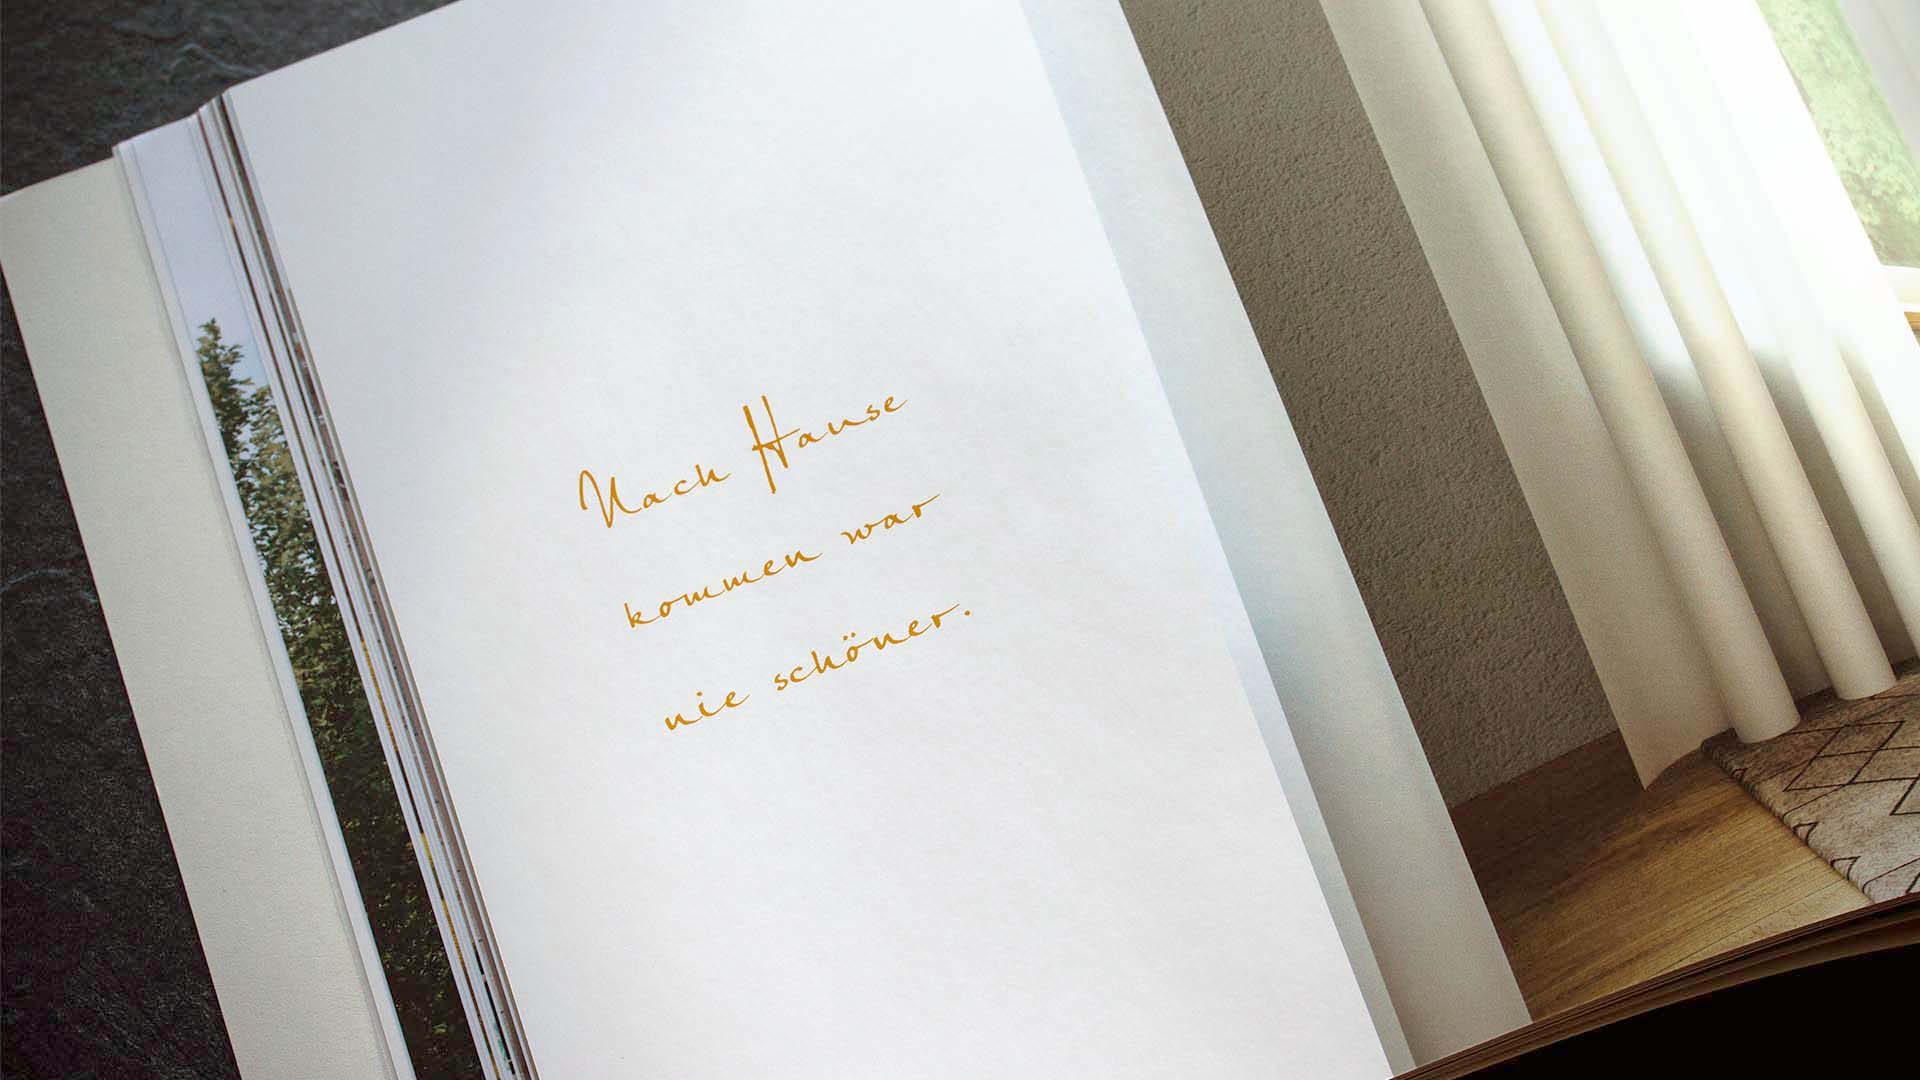 Nach Hause
kommen war
nie schöner.